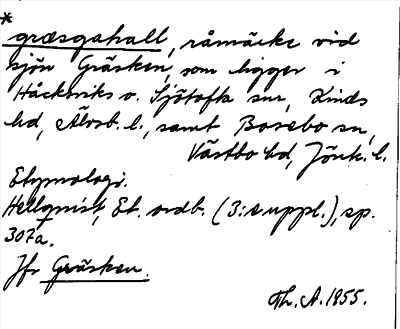 *
græsgahall, råmärke vid
sjön Gräsken, som ligger i
Håcksviks o. Sjötofta snr, Kinds
hd, Älvsb. l., samt Bosebo sn,
Västbo hd, Jönk. l.
Etymologi.
Hellquist, Et. ordb. (3:e uppl.), sp.
307a.
Jfr Gräsken.
Th. A. 1955.